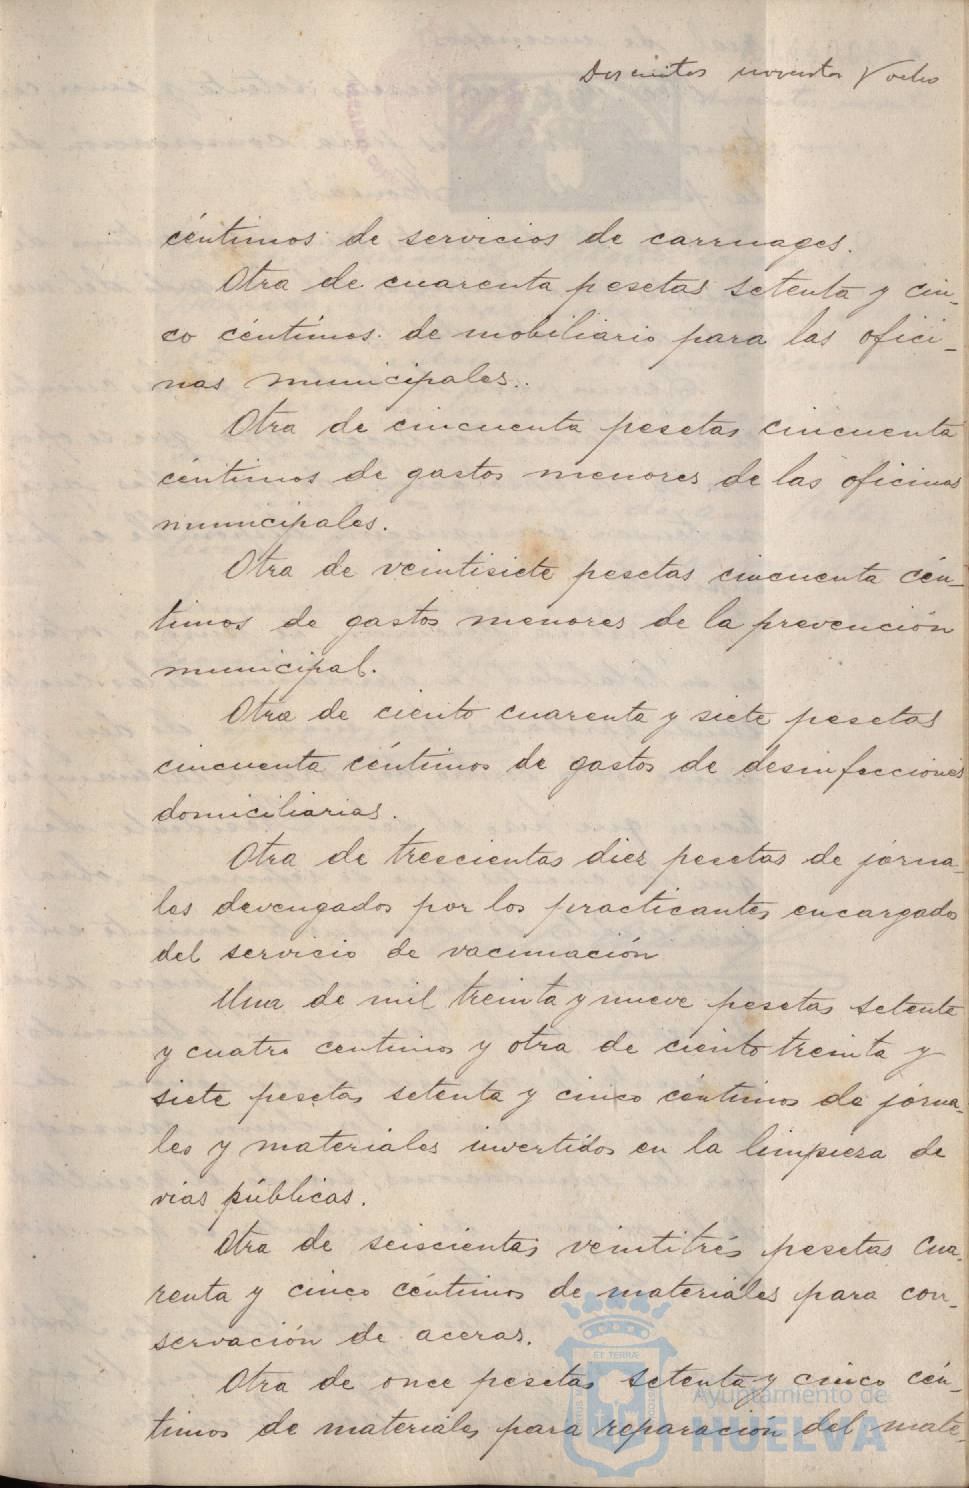 Doscientos noventa y ocho
céntimos de servicios de carruages.
Otra de cuarenta pesetas setenta y cin-
co céntimos de mobiliario para las ofici-
nas municipales.
Otra de cincuenta pesetas cincuenta
céntimos de gastos menores de las oficinas
municipales.
Otra de veintisiete pesetas cincuenta cén-
timos de gastos menores de la prevención
municipal.
Otra de ciento cuarenta y siete pesetas
cincuenta céntimos de gastos de desinfecciones
domiciliarias.
Otra de trescientas diez pesetas de jorna-
les devengados por los practicantes encargados
del servicio de vacunación
Una de mil treinta y nueve pesetas setenta
y cuatro centimos y otra de ciento treinta y
siete pesetas setenta y cinco céntimos de jorna-
les y materiales invertidos en la limpieza de
vias públicas.
Otra de seiscientas veintitrés pesetas cua-
renta y cinco céntimos de materiales para con-
servación de aceras.
Otra de once pesetas setenta y cinco cén-
timos de materiales para reparación del mate-
ET TERRÆ
Ayuntamiento de
HUELVA